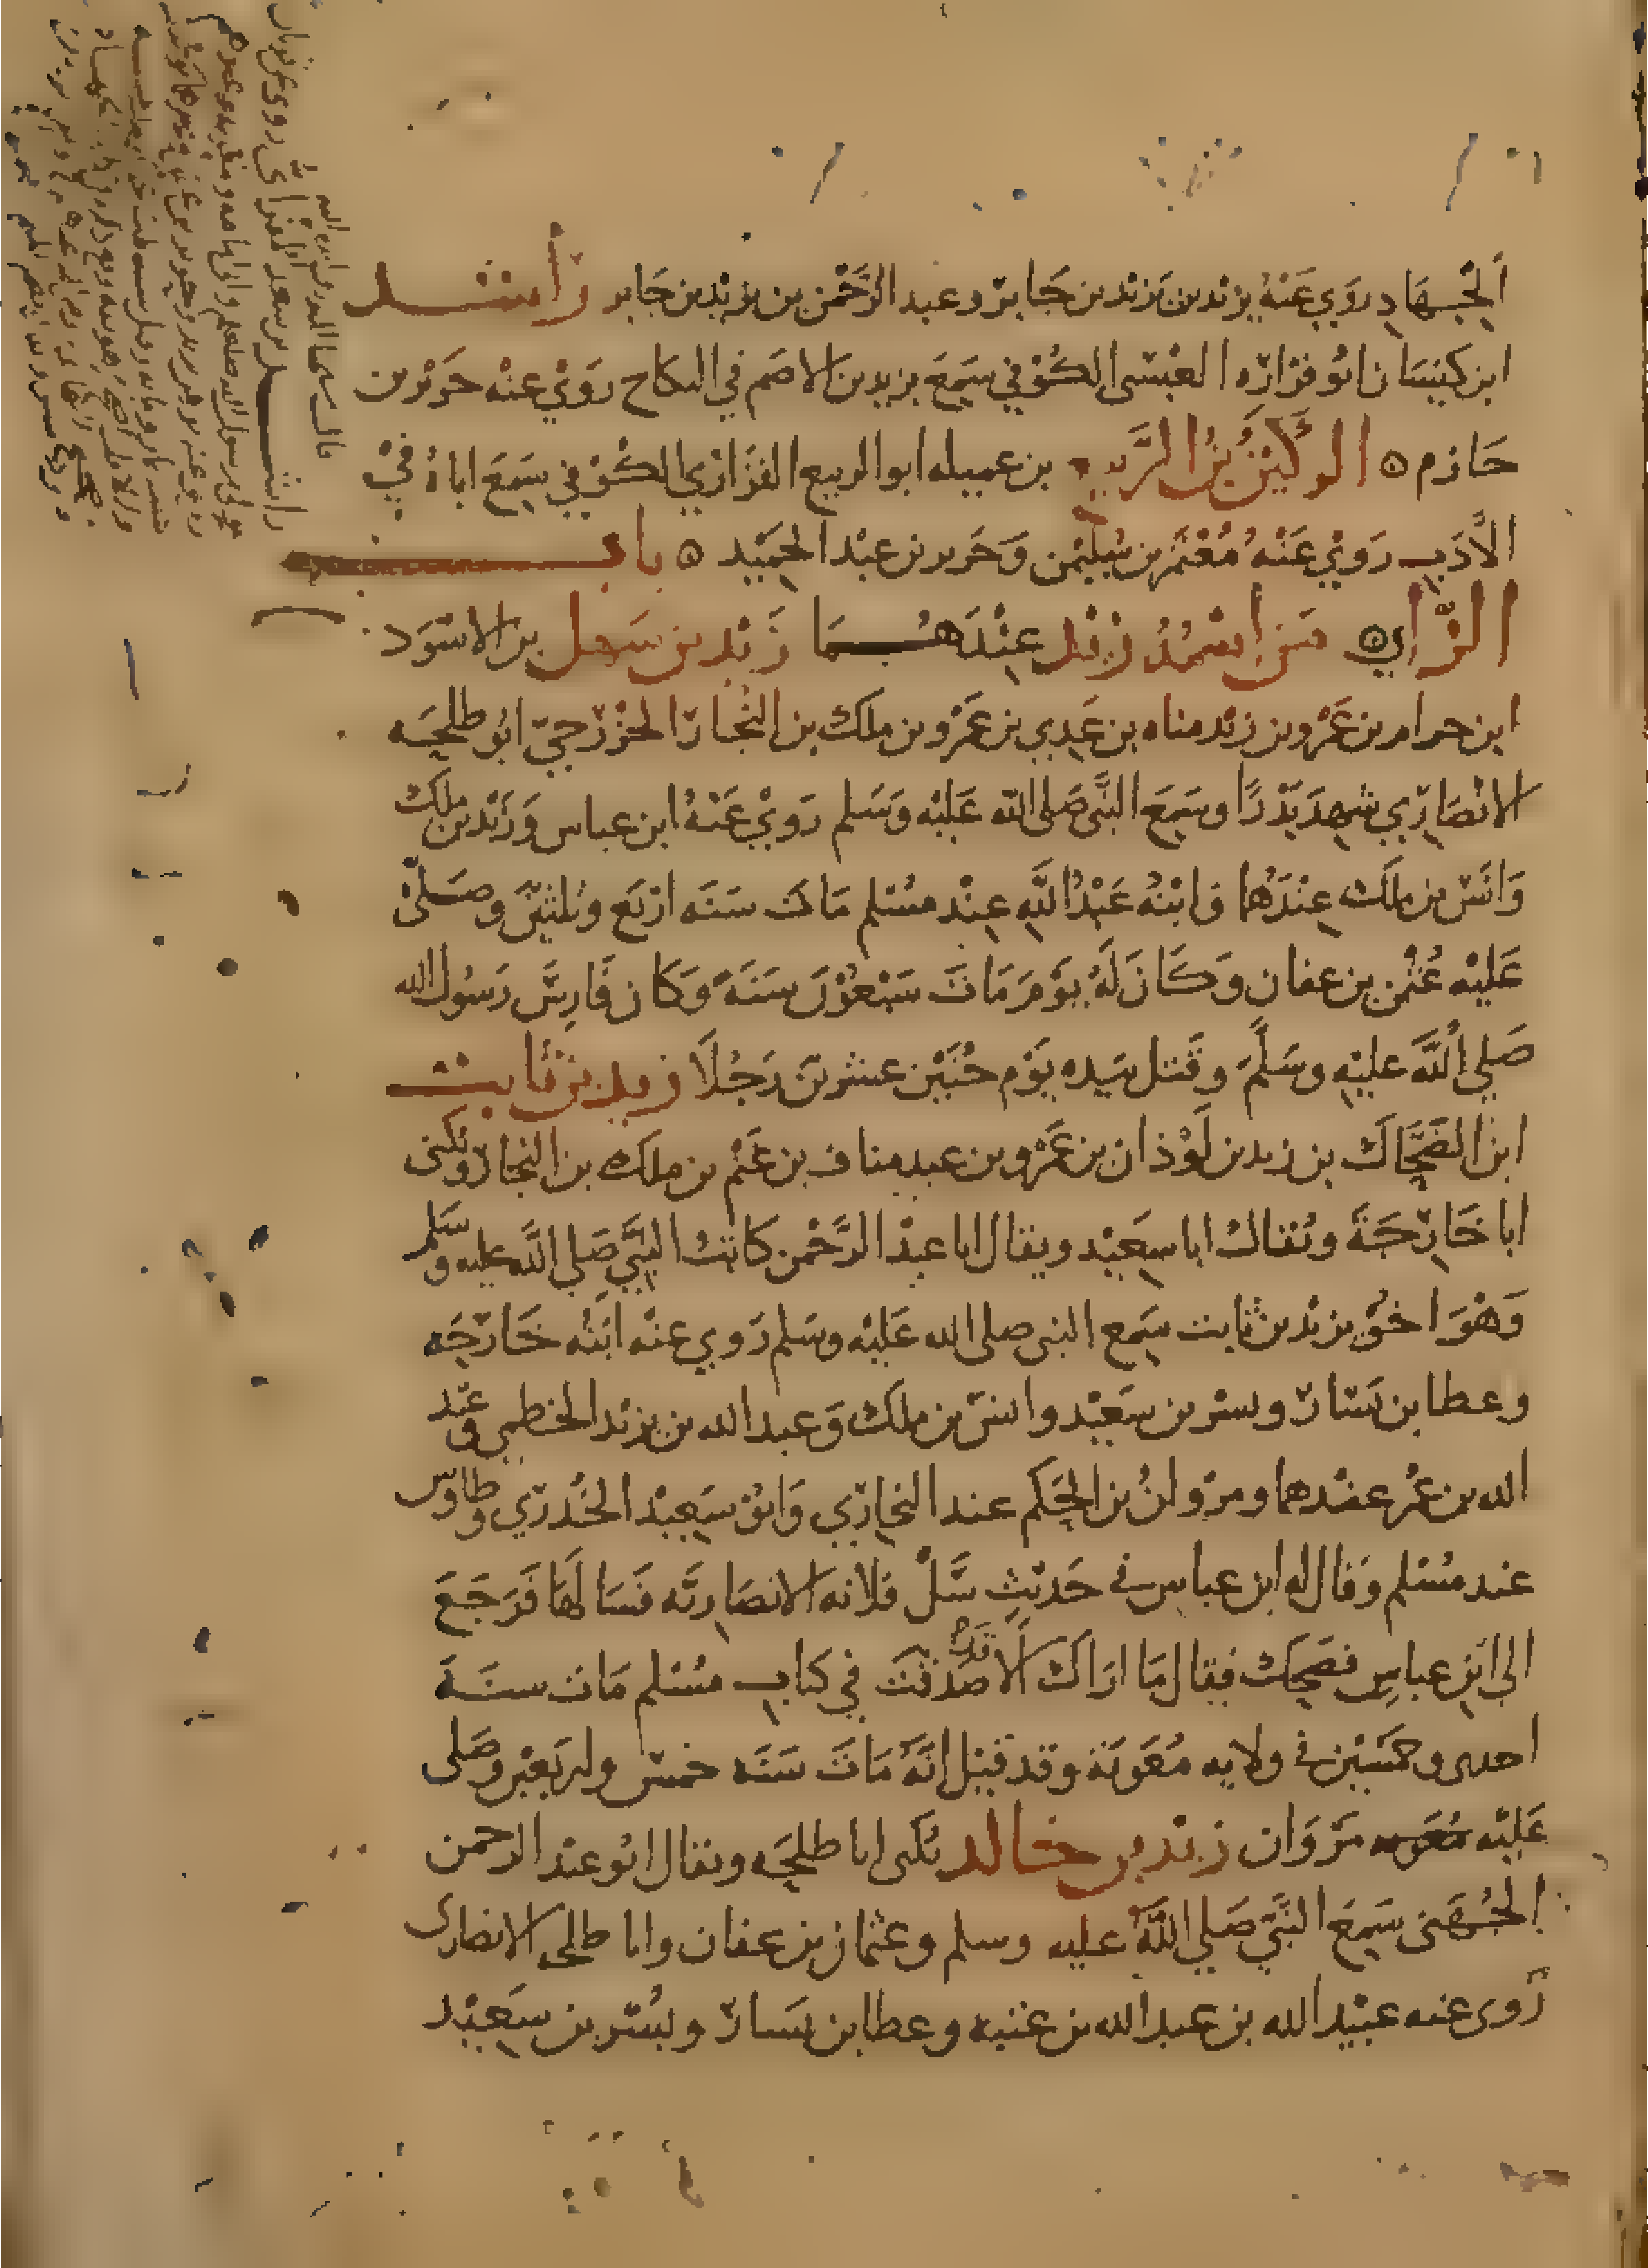 الجهاد روي عنه يزيد بن يزيد بن جابر وعبد الرحمن بن يزيد بن جابر راشد
ابن كيسان ابو فزاره العبسي الكوفي سمع يزيد بن الاصم في النكاح روي عنه جرير بن
حازم الركين بن الربيع بن عميله ابو الربيع الفزاري الكوفي سمع اباه في
الادب روي عنه معتمر بن سليمن وجرير بن عبد الحميد باب
الزاي من اسمه زيد عندهما زيد بن سهل بن الاسود
ابن حرام بن عمرو بن زيد مناه بن عدي بن عمرو بن ملك بن النجار الخزرجي ابو طلحه
الانصاري شهد بدرا وسمع النبي صلى الله عليه وسلم روي عنه ابن عباس وزيد بن ملك
وانس بن ملك عندهما وابنه عبد الله عند مسلم مات سنه اربع وثلثين وصلى
عليه عثمن بن عفان وكان له يوم مات سبعون سنة وكان فارس رسول الله
صلي الله عليه وسلم وقتل بيده يوم حنين عشرين رجلا زيد بن ثابت
ابن الضحاك بن زيد بن لوذان بن عمرو بن عبد مناف بن غنم بن ملك بن النجار ويكنى
ابا خارجة ويقال ابا سعيد ويقال ابا عبد الرحمن كاتب النبي صلي الله عليه وسلم
وهو اخو يزيد بن ثابت سمع النبي صلى الله عليه وسلم روي عنه ابنه خارجه
وعطا بن يسار وبسر بن سعيد وانس بن ملك وعبد الله بن يزيد الخطمي وعبد
الله بن عمر عندهما ومروان بن الحكم عند البخاري وابو سعيد الخدري وطاوس
عند مسلم وقال له ابن عباس في حديث سل فلانه الانصاريه فسالها فرجع
الى ابن عباس فضحك فقال ما اراك الا قد صدقت في كتاب مسلم مات سنة
احدى وخمسين في ولايه معوية وقد قيل انه مات سنه خمس واربعين وصلى
عليه معويه مروان زيد بن خالد يكنى ابا طلحه ويقال ابو عبد الرحمن
الجهني سمع النبي صلي الله عليه وسلم وعثمان بن عفان وابا طلحه الانصاري
روى عنه عبيد الله بن عبد الله بن عتبه وعطا بن يسار وبسر بن سعيد
راشد بن سعد